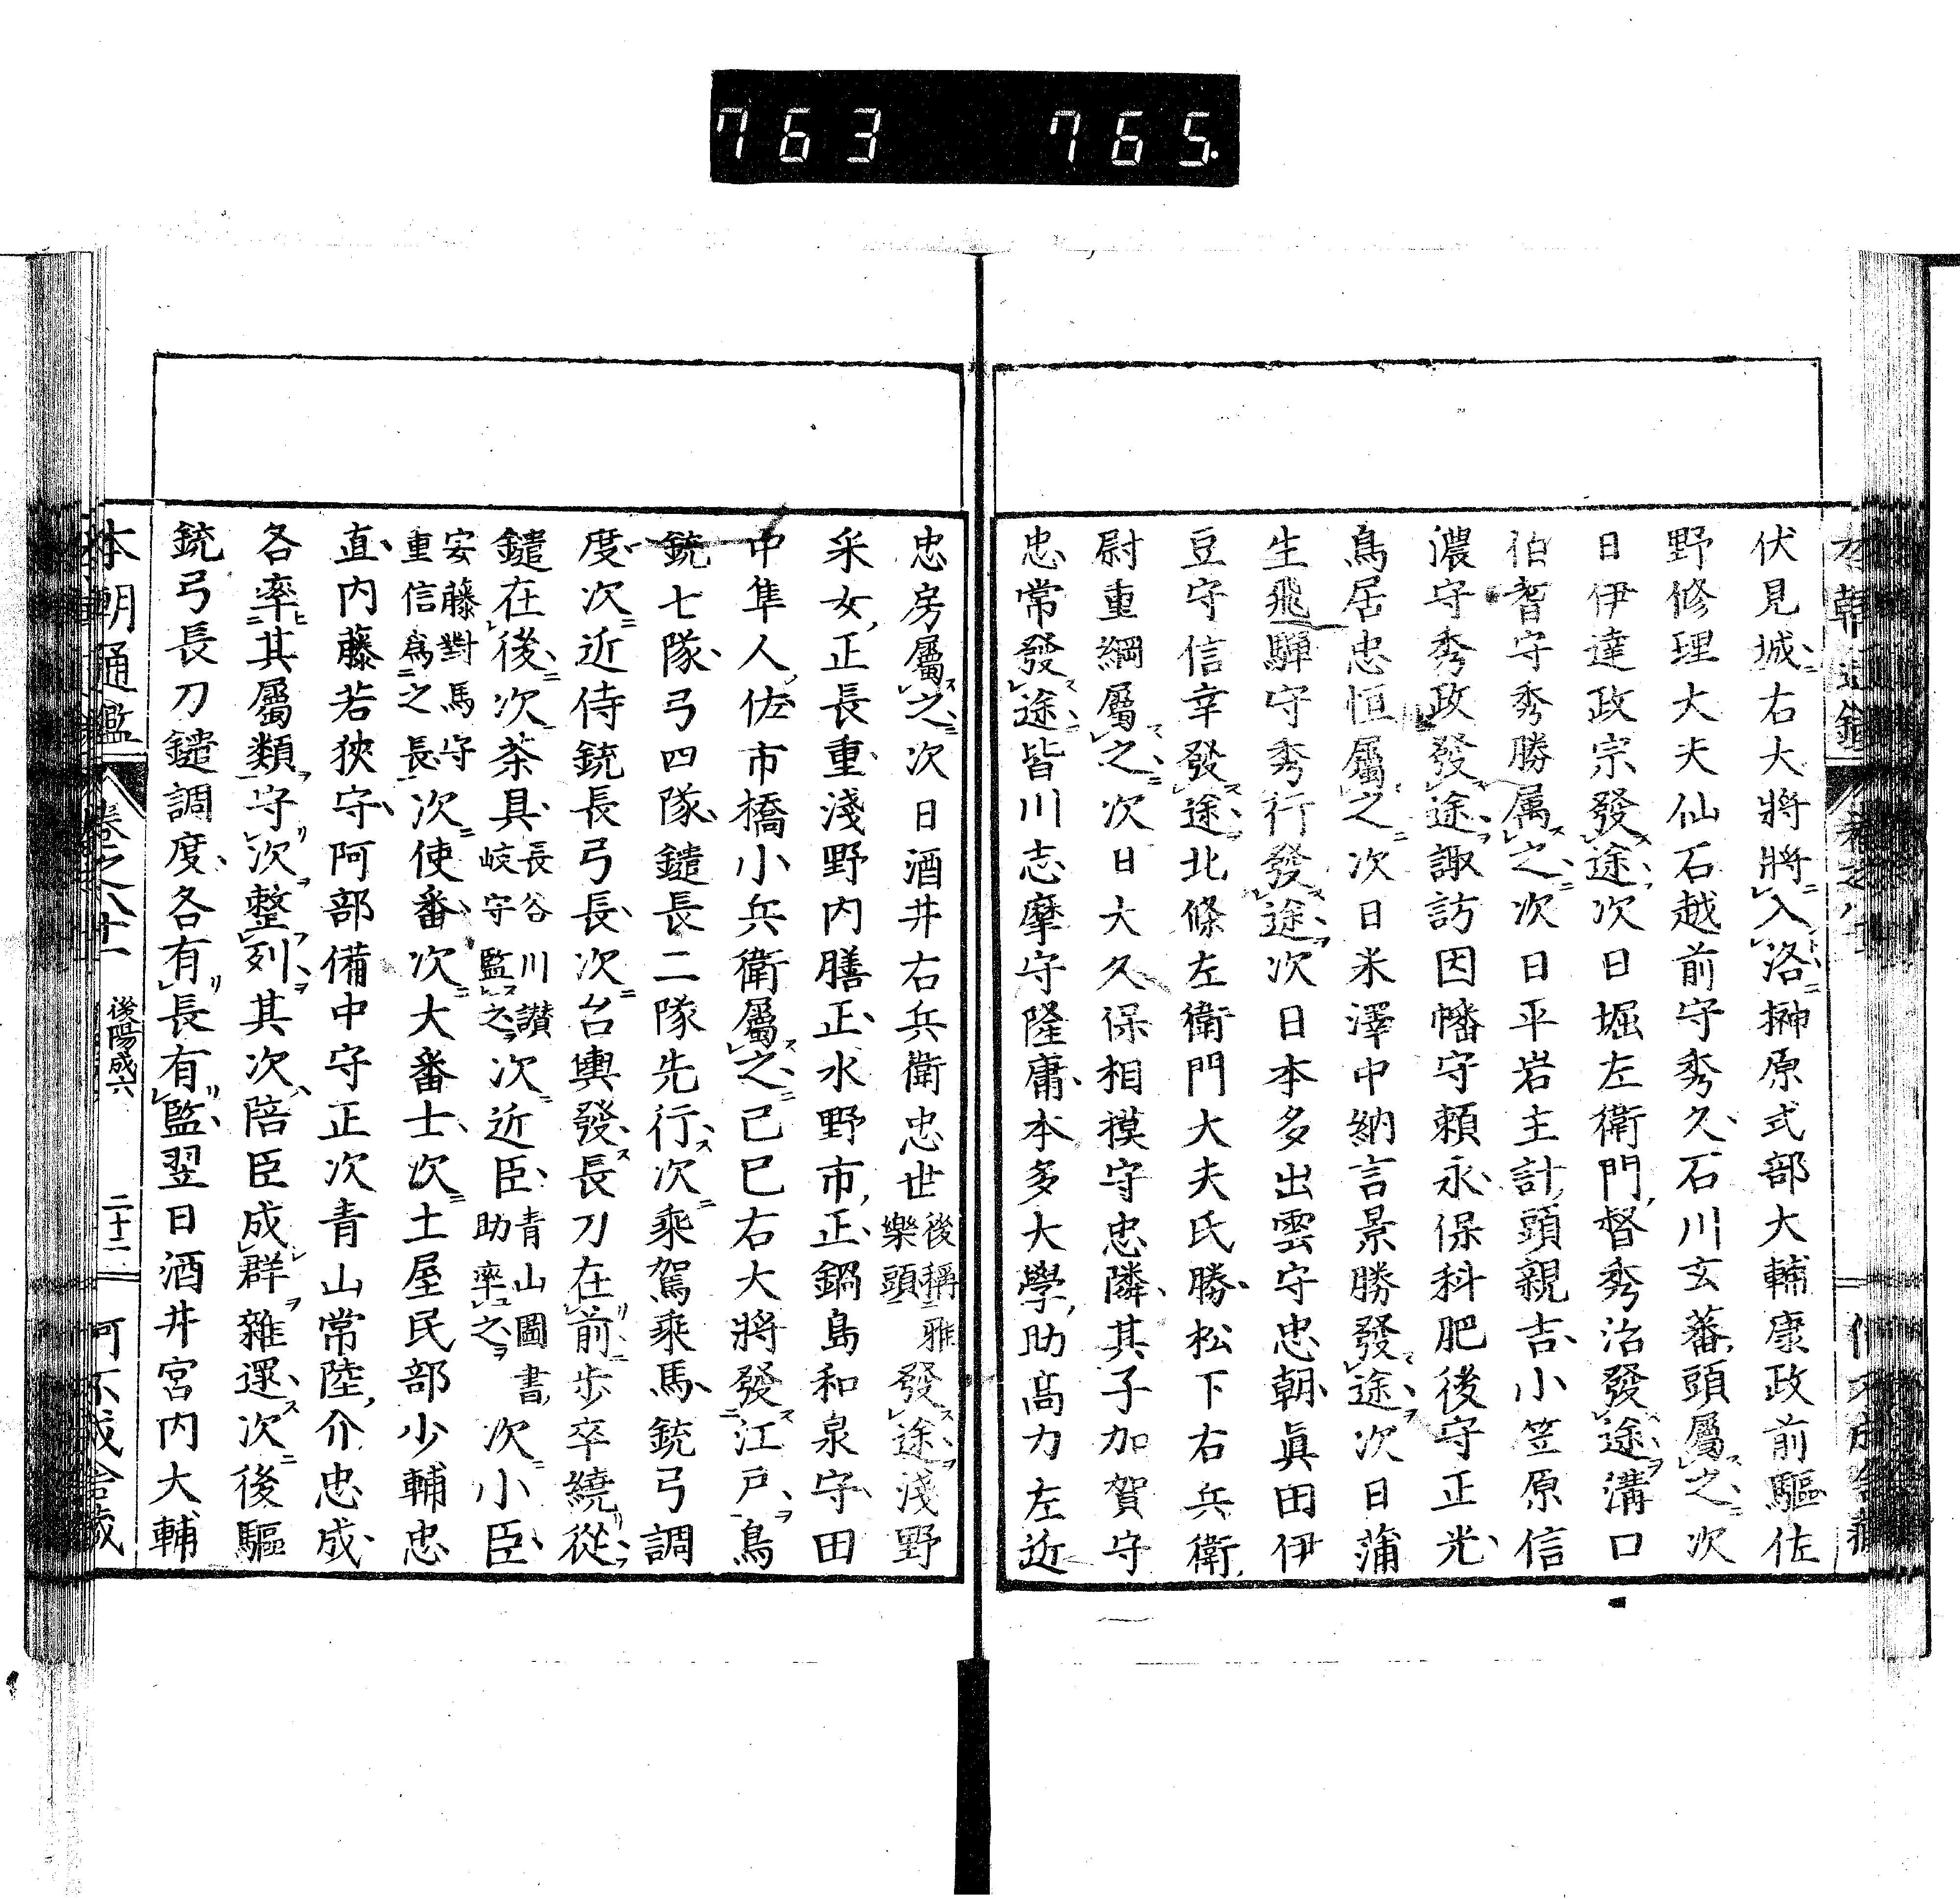 763 765
伏見城右大將將入洛榊原式部大輔康政前驅佐
野修理大夫仙石越前守秀久石川玄蕃頭屬之次
日伊達政宗發途次日堀左衛門督秀治發途溝口
伯耆守秀勝属之次日平岩主計頭親吉小笠原信
濃守秀政發途諏訪因幡守頼永保科肥後守正光
鳥居忠恒屬之次日米澤中納言景勝發途次日蒲
生飛騨守秀行發途次日本多出雲守忠朝眞田伊
豆守信幸發途北條左衛門大夫氏勝松下右兵衛
尉重綱屬之次日大久保相摸守忠隣其子加賀守
忠常發途皆川志摩守隆庸本多大學助髙力左近
忠房屬之次日酒井右兵衛忠世後稱雅樂頭發途淺野
采女正長重淺野内膳正水野市正鍋島和泉守田
中隼人佐市橋小兵衛屬之己巳右大將發江戸鳥
銃七隊弓四隊鑓長二隊先行次乘駕乘馬銃弓調
度次近侍銃長弓長次台輿發長刀在前歩卒繞從
鑓在後次茶具長谷川讃岐守監之次近臣青山圖書助率之次小臣
安藤對馬守重信為之長次使番次大番士次土屋民部少輔忠
直内藤若狹守阿部備中守正次青山常陸介忠成
各率其屬類守次整列其次陪臣成群雜還次後驅
銃弓長刀鑓調度各有長有監翌日酒井宮内大輔
本朝通鑑 卷之八十 後陽成六 二十二